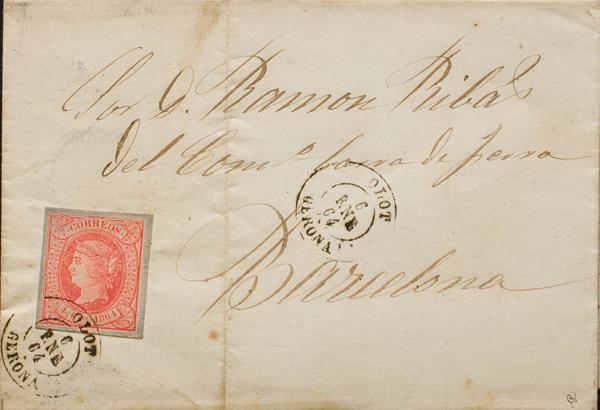 Sor D. Ramon Ribas
del Com.º barra de ferro
Barcelona
OLOT
6
ENE
64
GERONA
CORREOS
1864
OLOT
6
ENE
64
GERONA